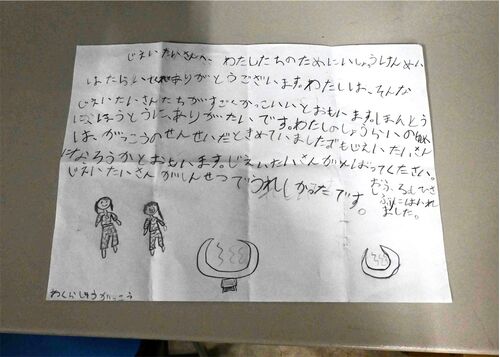 じえいたいさんへ、わたしたちのためにいしょうけんめい
はたらいてくれありがとうございます。わたしは、そんな
じえいたいさんたちがすごくかっこいいとおもいます。ほんとう
にほうとうに、ありがたいです。わたしのしょうらいのゆめ
は、がっこうのせんせいだときめていましたがでもじえいたいさん
になろうかとおもいます。じえいたいさんがんばってください。
じえいたいさんがしんせつでうれしかったです。
おふろもひさ
しぶりにはいれ
ました。
わくらしょうがっこう